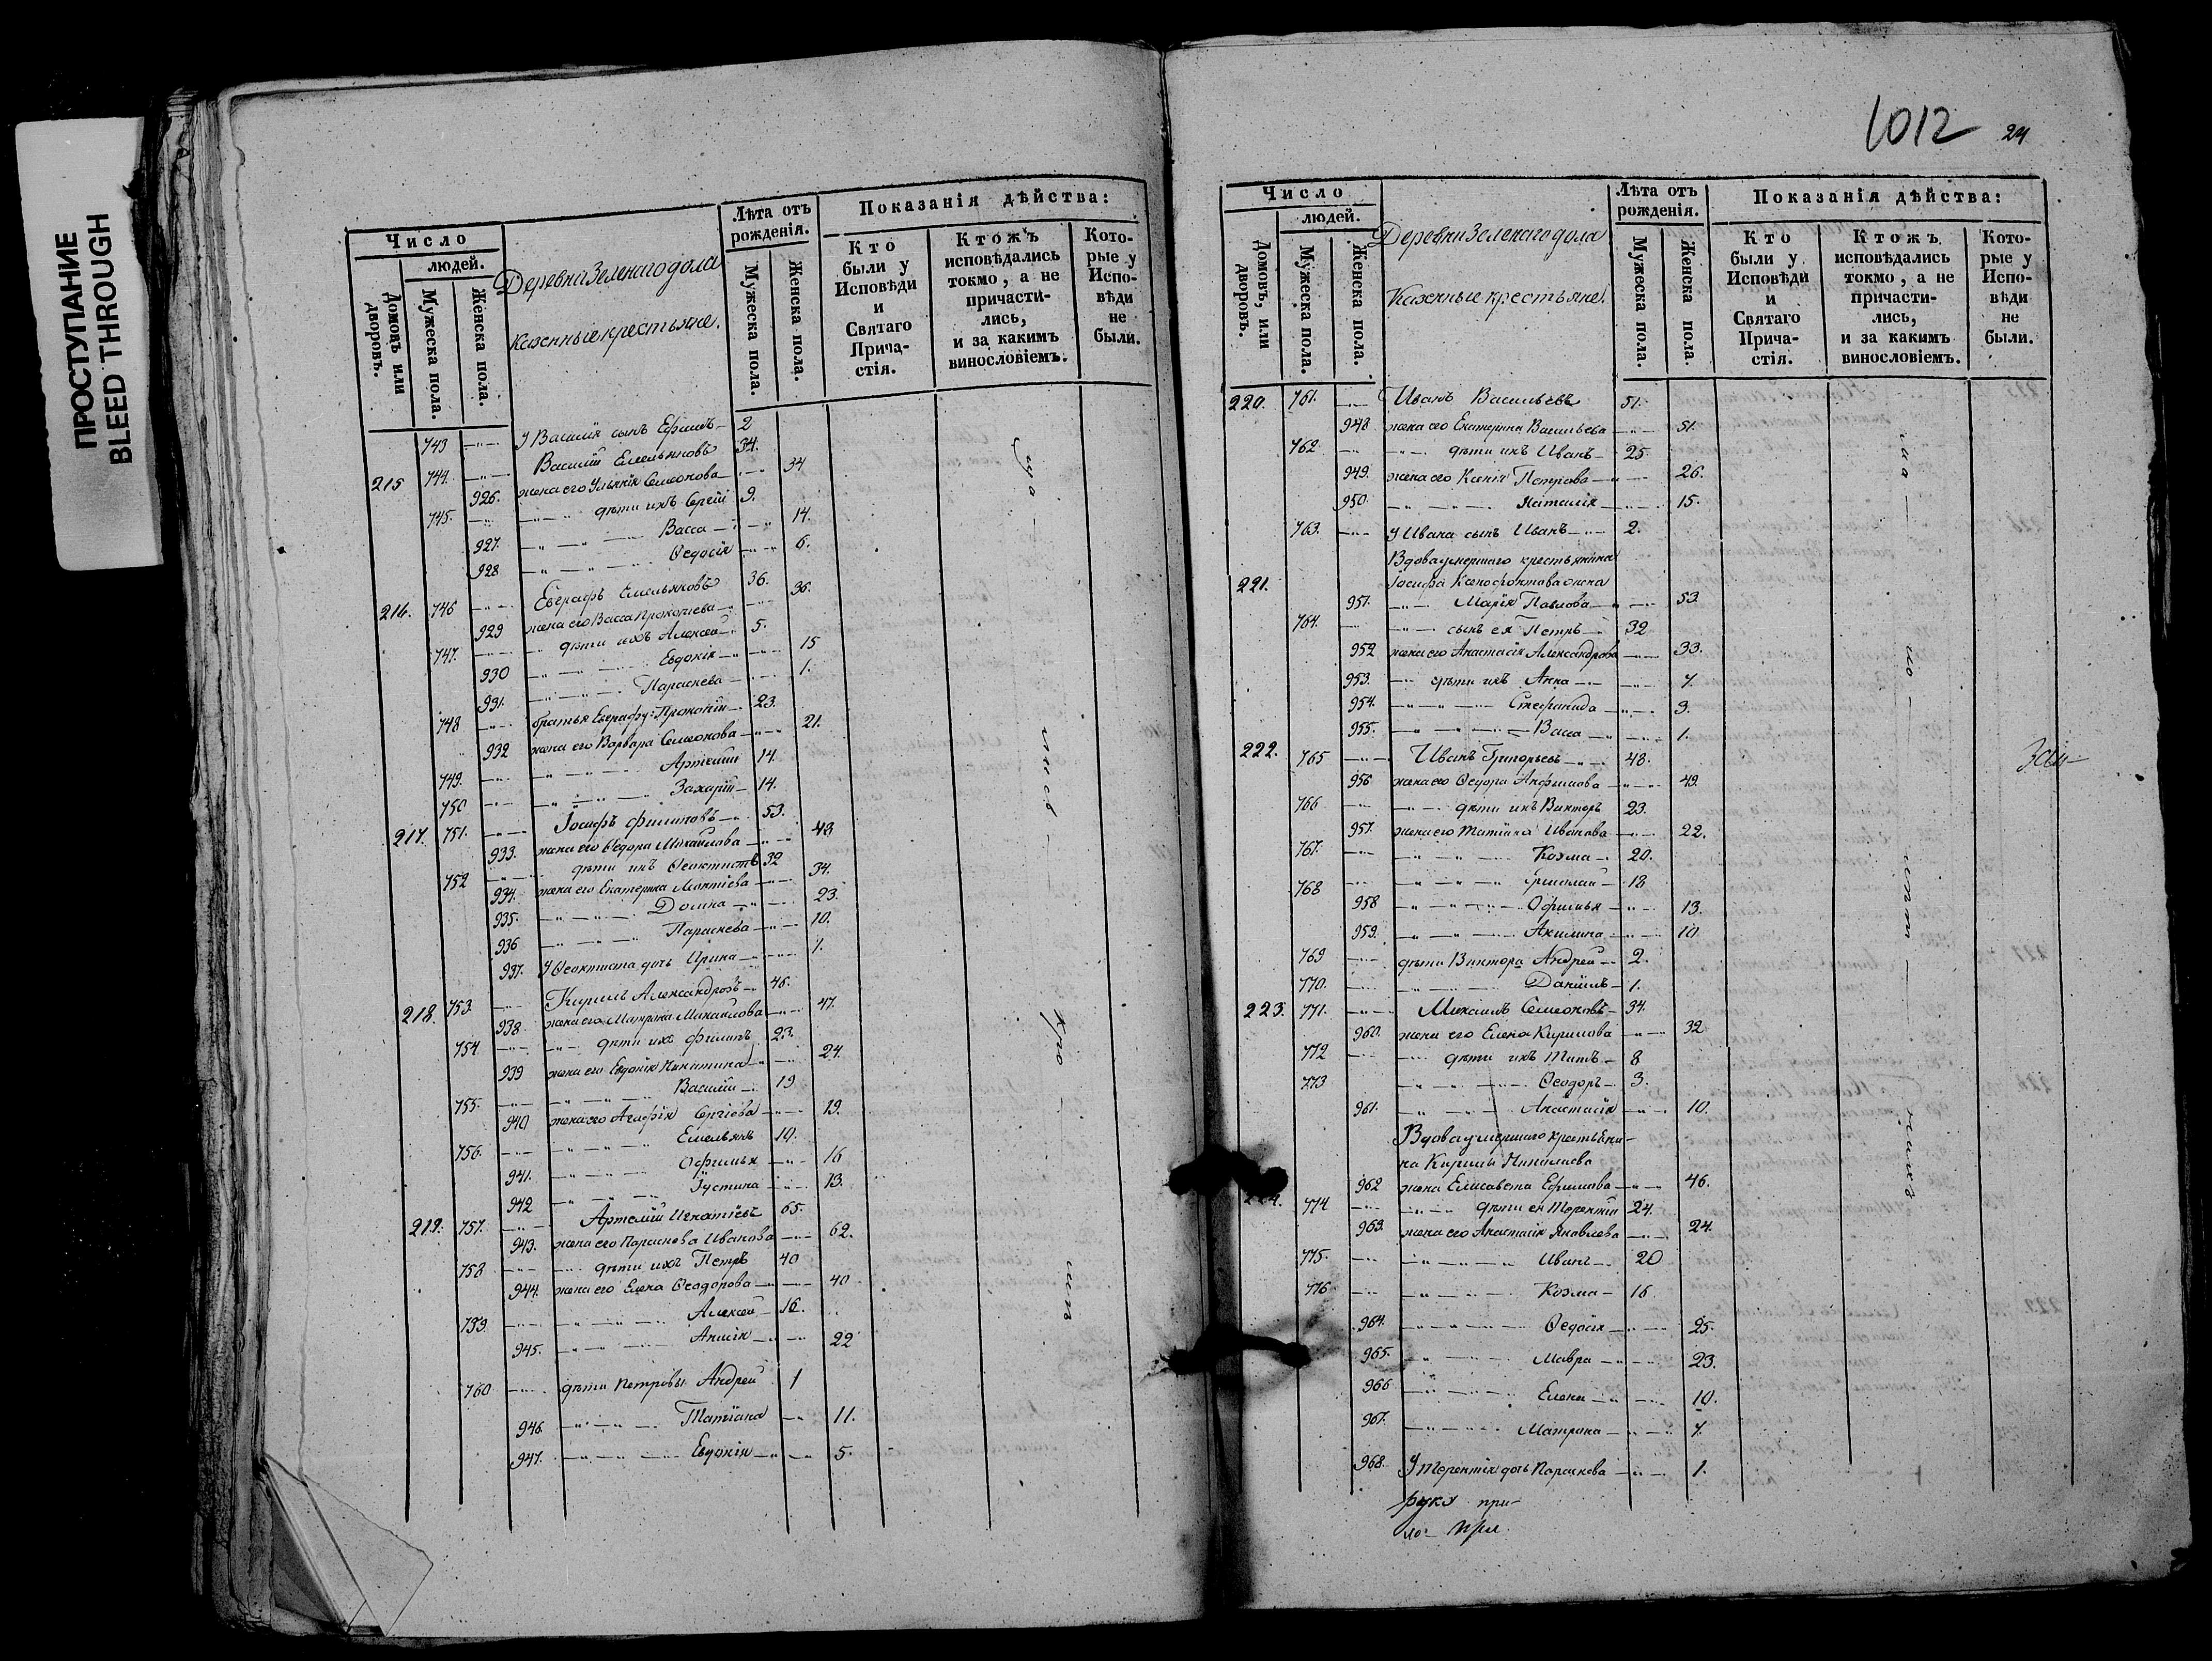 ПРОСТУПАНИЕ
BLEED THROUGH
Число
людей.
Домовъ или дворовъ.
Мужеска пола.
Женска пола.
Деревни Зеленаго дола
казенные крестьяне.
Лѣта отъ рожденія.
Мужеска пола.
Женска пола.
Показанія дѣйства:
Кто были у Исповѣди и Святаго Прича-стія.
Ктожъ исповѣдались токмо, а не причасти-лись, и за какимъ винословіемъ.
Кото-рые у Испо-вѣди не были.
743 У Василія сынъ Ефимъ 2
215 744. Василій Емельяновъ 34.
926. жена его Ульянія Семенова 34
745. дѣти ихъ Сергій 9.
927. Васса 14.
928 Ѳедосія 6.
216. 746 Евграфъ Емельяновъ 36.
929 жена его Васса Прокопіева 36.
747. дѣти ихъ Алексей 5.
930 Евдокія 15
931. Параскева 1.
748 братья Евграфу: Прокопій 23.
932 жена его Варвара Семенова 21.
749. Артемій 14.
750 Захарій 14.
217. 751. Іосифъ Филиповъ 53.
933. жена его Ѳедора Михаилова 43
752 дѣти ихъ Ѳеоктистъ 32
934. жена его Екатерина 34.
935. Домна 23.
936 Параскева 10.
937. У Ѳеоктиста дочь Ирина 1.
218. 753. Кирилъ Александровъ 46.
938 жена его Матрона Михаилова 47.
754 дѣти ихъ Филипъ 23.
939 жена его Евдокія Никитина 24.
755. Василій 19
940 жена его Агафія Сергіева 19.
756. Емельянъ 10.
941. Офимья 16
942 Іустина 13.
219. 757. Артемій Игнатіевъ 65.
943. жена его Параскева Иванова 62.
758 дѣти ихъ Петръ 40
944. жена его Елена Ѳеодорова 40
759. Алексей 16.
945. Анисія 22
760 дѣти Петровы Андрей 1
946. Татіана 11.
947. Евдокія 5.
1012 24
Число
людей.
Домовъ, или дворовъ.
Мужеска пола.
Женска пола.
Деревни Зеленаго дола
Казенные крестьяне.
Лѣта отъ рожденія.
Мужеска пола.
Женска пола.
Показанія дѣйства:
Кто были у Исповѣди и Святаго Прича-стія.
Ктожъ исповѣдались токмо, а не причасти-лись, и за какимъ винословіемъ.
Кото-рые у Испо-вѣди не были.
220. 761. Иванъ Васильевъ 51.
948 жена его Екатерина Васильева 51.
762 дѣти ихъ Иванъ 25.
949. жена его Ксенія Петрова 26.
950. Наталія 15.
763. У Ивана сынъ Иванъ 2.
Вдова умершаго крестьянина
221. Іосифа Ксенофонтова жена
951. Марія Павлова 53.
764. сынъ ея Петръ 32
952 жена его Анастасія Александрова 33.
953. дѣти ихъ Анна 7.
954. Стефанида 3.
955. Васса 1.
222. 765 Иванъ Григорьевъ 48.
956 жена его Ѳедора Анфимова 49.
766 дѣти ихъ Викторъ 23.
957. жена его Татіана Иванова 22.
767. Козма 20.
768 Ермолай 18
958 Офимья 13.
959. Акилина 10
769 дѣти Виктора Андрей 2.
770. Даніилъ 1.
223. 771. Михаилъ Семеновъ 34.
960. жена его Елена Кирилова 32
772 дѣти ихъ Титъ 8
773 Ѳеодоръ 3.
961. Анастасія 10.
Вдова умершаго крестьяни-
на Кирилы
962 жена Елисавета Ефимова 46.
224. 774 дѣти ея Терентій 24.
963. жена его Анастасія Яковлева 24.
775. Иванъ 20
776 Козма 16
964. Ѳедосія 25.
965. Мавра 23.
966 Елена 10.
967. Матрона 7.
968. У Терентія дочь Параскева 1.
руку при-
ло-